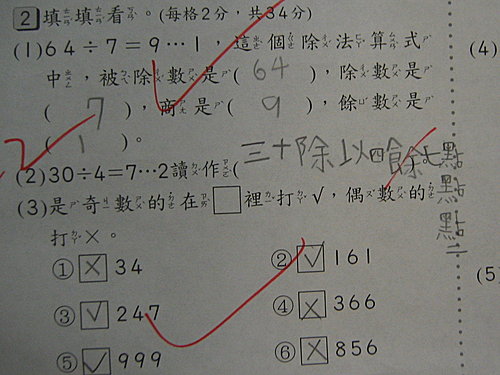 2 填填看。(每格2分，共34分)
(1) 64÷7=9…1，這個除法算式
中，被除數是( 64 )，除數是
( 7 )，商是( 9 )，餘數是
( 1 )。
(4)
(2) 30÷4=7…2讀作( 三十除以四餘七點點點二
(3) 是奇數的在□裡打✓，偶數的
打×。
① ☒ 34
② ☑ 161
③ ☑ 247
④ ☒ 366
⑤ ☑ 999
⑥ ☒ 856
(5)